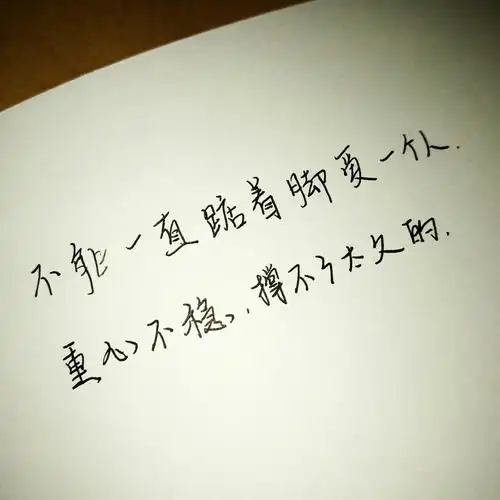 不能一直踮着脚爱一个人.
重心不稳,撑不了太久的.